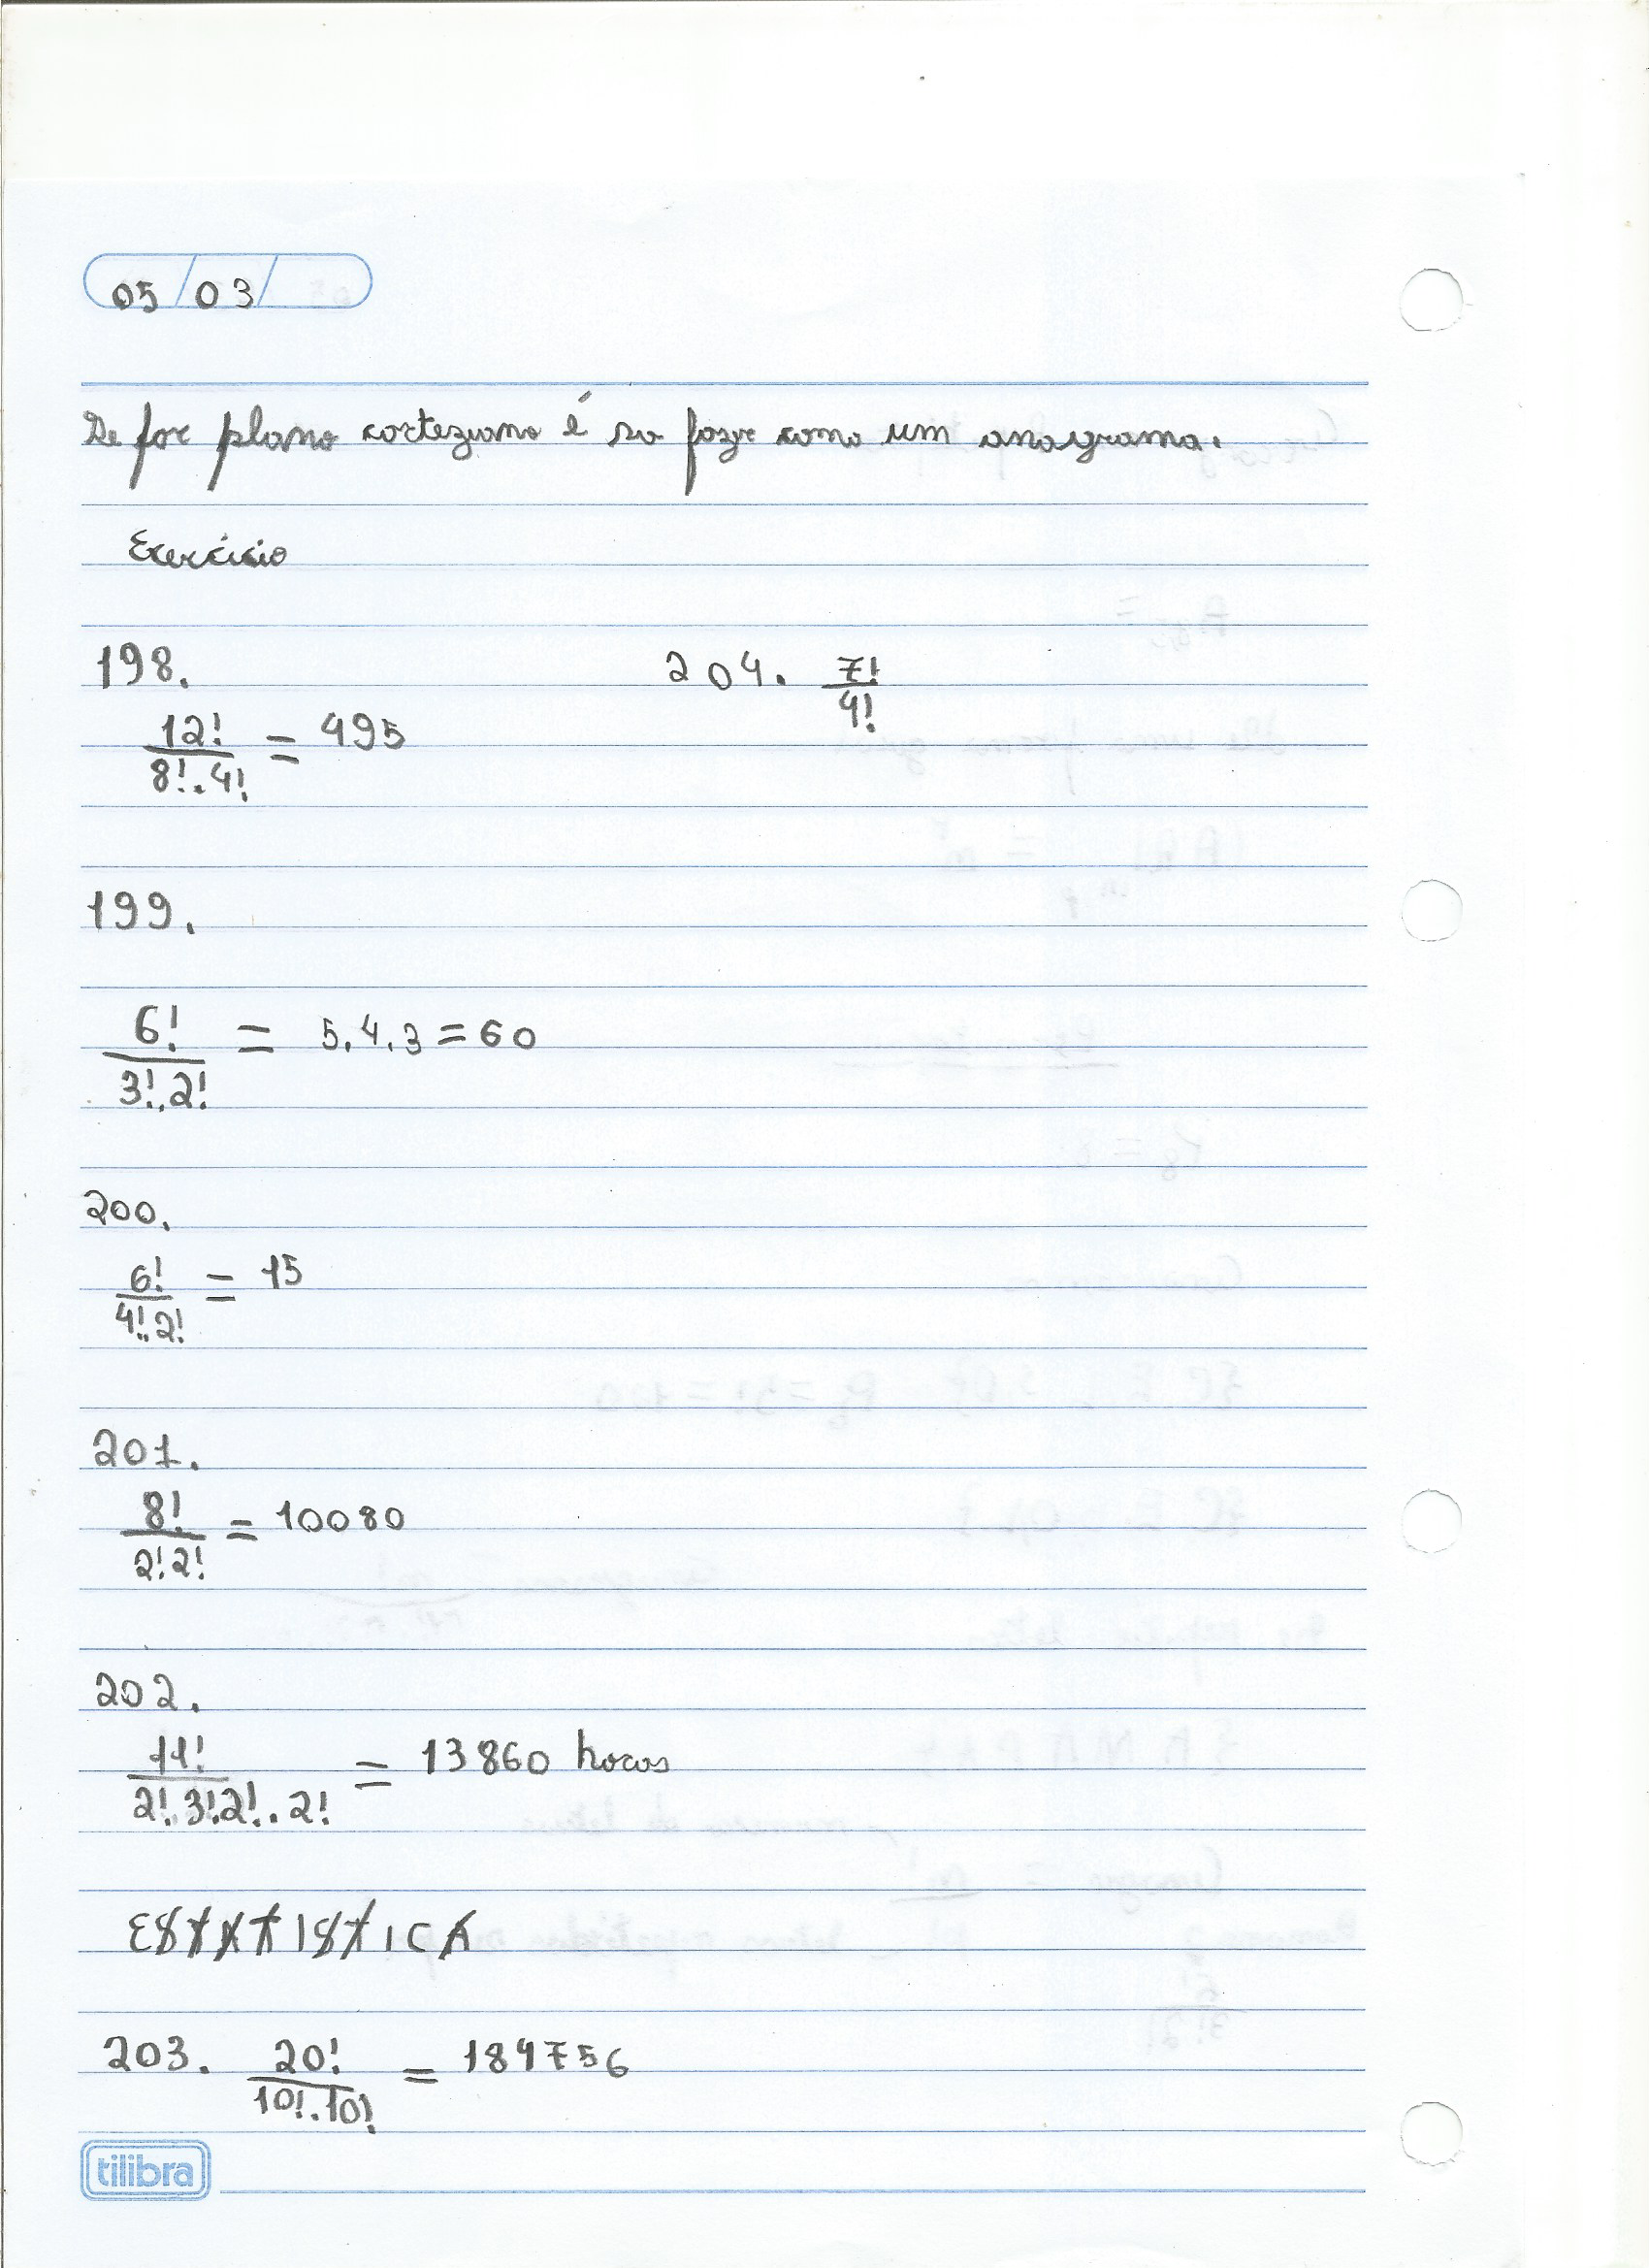 05/03/
Se for plano carteziano é so fazer como um anagrama.
Exercício
198.
12!/8!.4! = 495
199.
6!/3!.2! = 5.4.3 = 60
200.
6!/4!.2! = 15
201.
8!/2!.2! = 10080
202.
11!/2!.3!.2!.2! = 13860 horas
ESTATISTICA
203. 20!/10!.10! = 184756
204. 7!/4!
tilibra